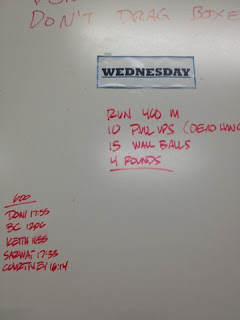 DON'T DRAG BOXE
WEDNESDAY
RUN 400 M
10 PULL UPS (DEAD HANG
15 WALL BALLS
4 ROUNDS
600
DONI 17:55
BC 1206
KEITH 1155
SARWAT 17:33
COURTNEY 16:14